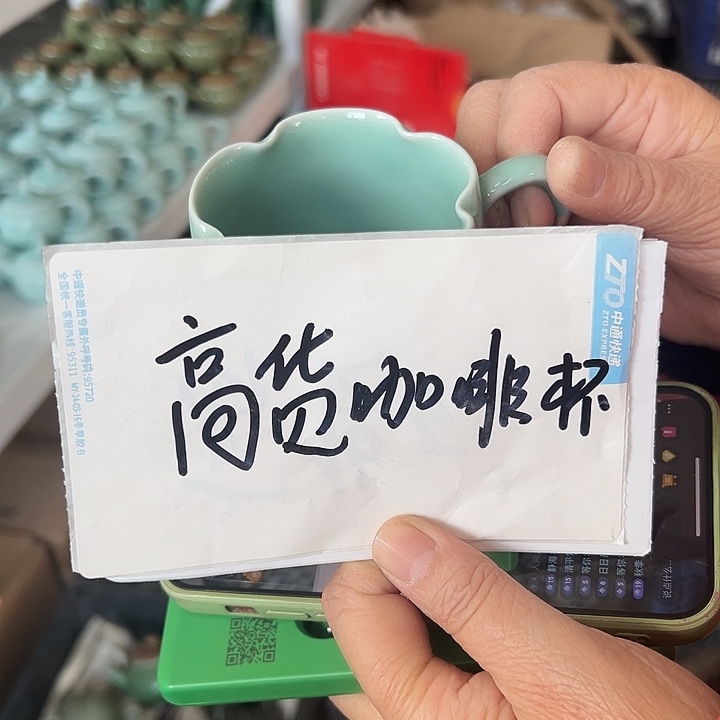 高货咖啡杯
ZTO中通快递
ZTO EXPRESS
中通快递员专属外呼号码:95720
全国统一客服热线:95311
说点什么...